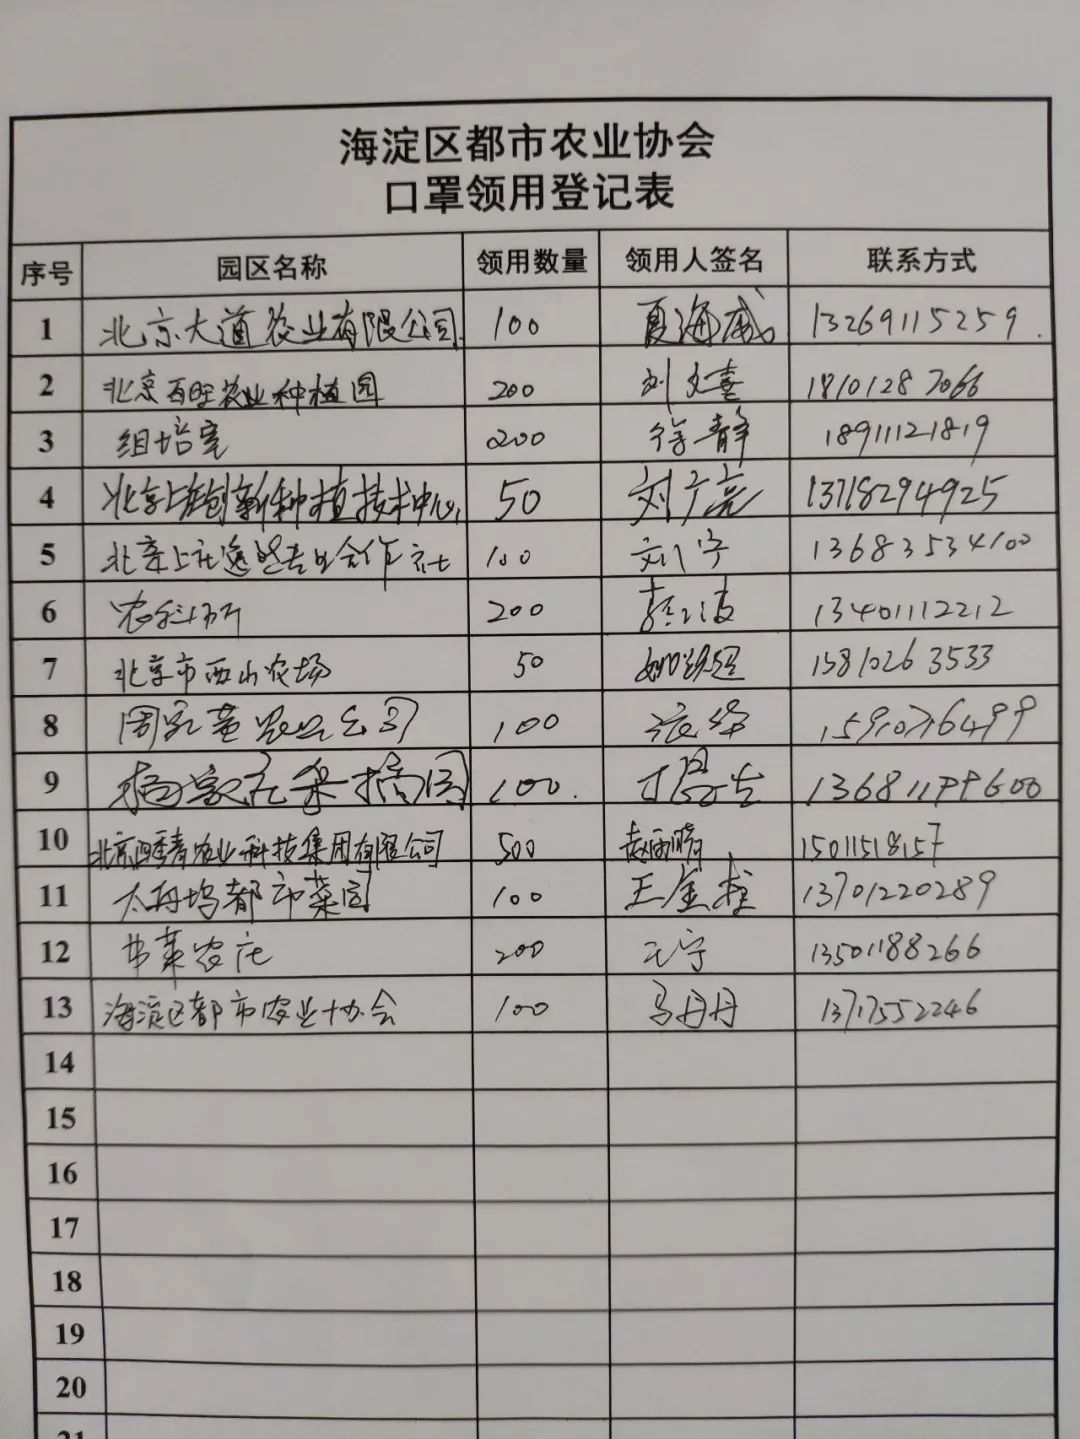 海淀区都市农业协会
口罩领用登记表
序号 园区名称 领用数量 领用人签名 联系方式
1 北京大道农业有限公司 100 夏海威 13269115259.
2 北京百旺农业种植园 200 刘文喜 18101287066
3 组培室 200 徐静 18911121819
4 北京上庄创新种植技术中心 50 刘广亮 13718294925
5 北京上庄 合作社 100 刘宁 13683534100
6 农科所 200 13401112212
7 北京市西山农场 50 15810263533
8 周家巷农业公司 100
9 采摘园 100.
10 北京四季青农业科技集团有限公司 500 15011518157
11 太舟坞都市菜园 100 王金柱 13701220289
12 农庄 200 王宁 13501188266
13 海淀区都市农业协会 100 马丹丹 13717552246
14
15
16
17
18
19
20
21